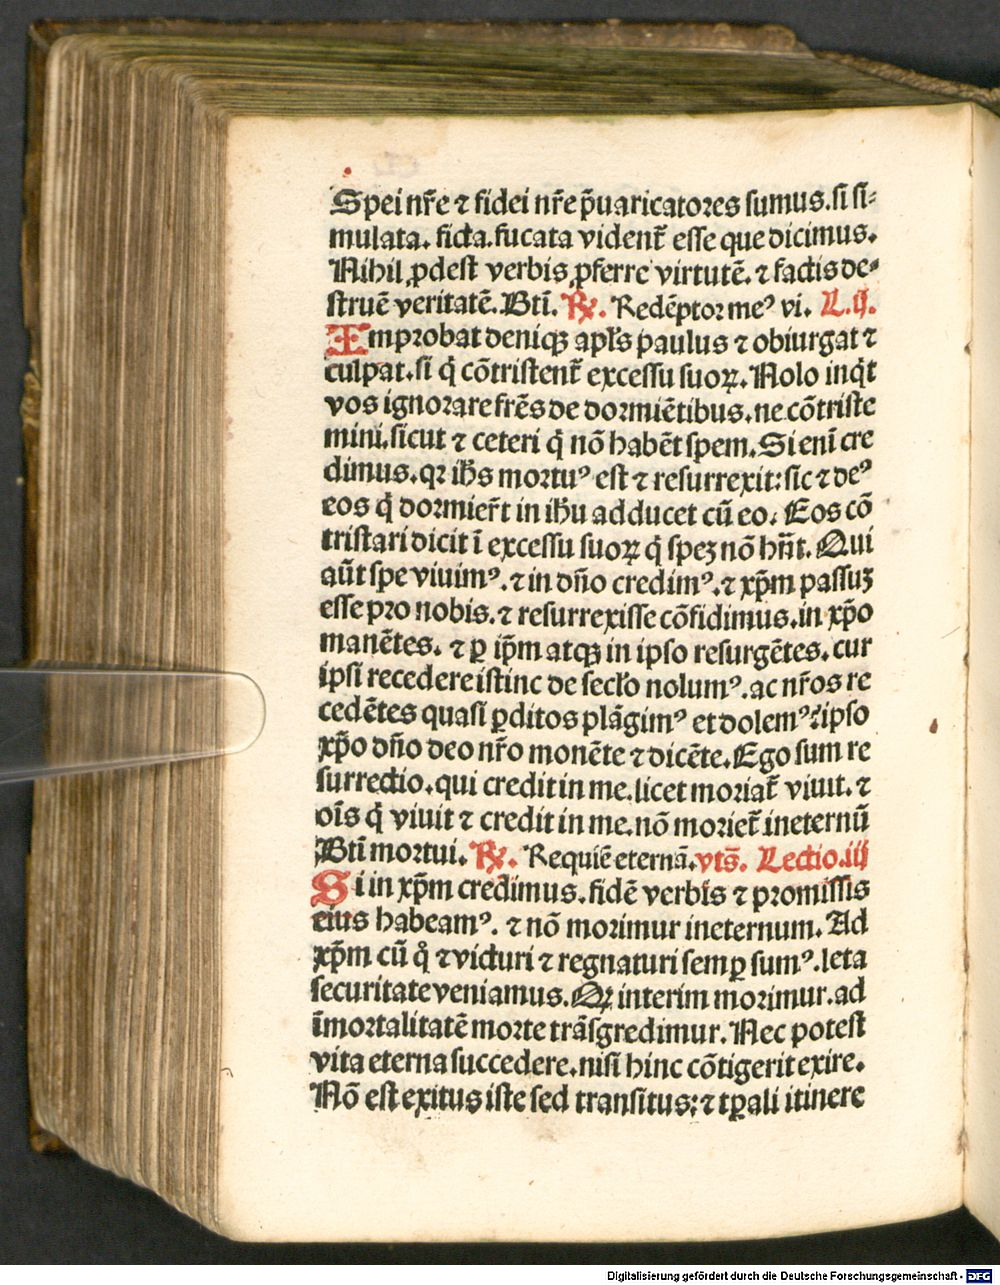 Spei nr̃e ⁊ fidei nr̃e p̃uaricatores sumus. si si⸗
mulata. ficta. fucata vident᷑ esse que dicimus.
Nihil ꝓdest verbis ꝓferre virtutẽ. ⁊ factis de⸗
struẽ veritatẽ. Btĩ. ℟. Redẽptor meꝰ vi. L. ij.
Improbat deniqꝫ apl̃s paulus ⁊ obiurgat ⁊
culpat. si q̇ cõtristent᷑ excessu suoꝝ. Nolo inq̇t
vos ignorare fr̃es de dormiẽtibus. ne cõtriste
mini. sicut ⁊ ceteri q̇ nõ habẽt spem. Si enĩ cre
dimus. qꝛ ih̃s mortuꝰ est ⁊ resurrexit: sic ⁊ deꝰ
eos q̇ dormier̃t in ih̃u adducet cũ eo. Eos cõ
tristari dicit ĩ excessu suoꝝ q̇ speꝫ nõ hñt. Qui
aũt spe viuimꝰ. ⁊ in dño credimꝰ. ⁊ xp̃m passuꝫ
esse pro nobis. ⁊ resurrexisse cõfidimus. in xp̃o
manẽtes. ⁊ ꝑ ip̃m atqꝫ in ipso resurgẽtes. cur
ipsi recedere istinc de secl̃o nolumꝰ. ac nr̃os re
cedẽtes quasi ꝑditos plãgimꝰ et dolemꝰ? ipso
xp̃o dño deo nr̃o monẽte ⁊ dicẽte. Ego sum re
surrectio. qui credit in me. licet moriat᷑ viuit. ⁊
oĩs q̇ viuit ⁊ credit in me. nõ moriet᷑ ineternũ
Btĩ mortui. ℟. Requiẽ eternã. vts̃. Lectio. iij
Si in xp̃m credimus. fidẽ verbis ⁊ promissis
eius habeamꝰ. ⁊ nõ morimur ineternum. Ad
xp̃m cũ q̊ ⁊ victuri ⁊ regnaturi semꝑ sumꝰ. leta
securitate veniamus. Qꝛ interim morimur. ad
ĩmortalitatẽ morte trãsgredimur. Nec potest
vita eterna succedere. nisi hinc cõtigerit exire.
Nõ est exitus iste sed transitus: ⁊ tꝑali itinere
Digitalisierung gefördert durch die Deutsche Forschungsgemeinschaft - DFG